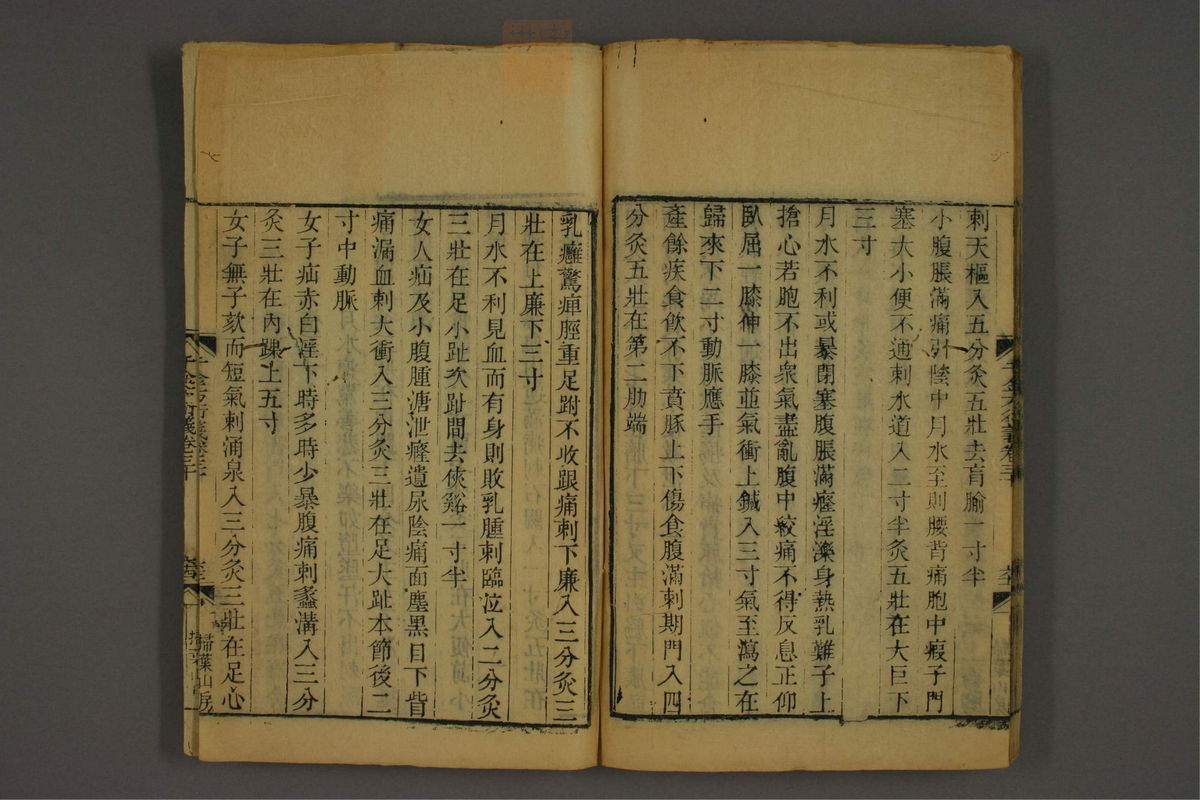 刺天樞入五分灸五壯去肓腧一寸半
小腹脹滿痛引陰中月水至則腰背痛胞中瘕子門
塞大小便不通刺水道入二寸半灸五壯在大巨下
三寸
月水不利或暴閉塞腹脹滿癃淫濼身熱乳難子上
搶心若胞不出衆氣盡亂腹中絞痛不得反息正仰
臥屈一膝伸一膝並氣衝上鍼入三寸氣至瀉之在
歸來下二寸動脈應手
產餘疾食飲不下賁豚上下傷食腹滿刺期門入四
分灸五壯在第二肋端
乳癰驚痺脛重足跗不收跟痛刺下廉入三分灸三
壯在上廉下三寸
月水不利見血而有身則敗乳腫刺臨泣入二分灸
三壯在足小趾次趾間去俠谿一寸半
女人疝及小腹腫溏泄癃遺尿陰痛面塵黑目下眥
痛漏血刺大衝入三分灸三壯在足大趾本節後二
寸中動脈
女子疝赤白淫下時多時少暴腹痛刺蠡溝入三分
灸三壯在內踝上五寸
女子無子欬而短氣刺涌泉入三分灸三壯在足心
千金方衍義卷三十
掃葉山房